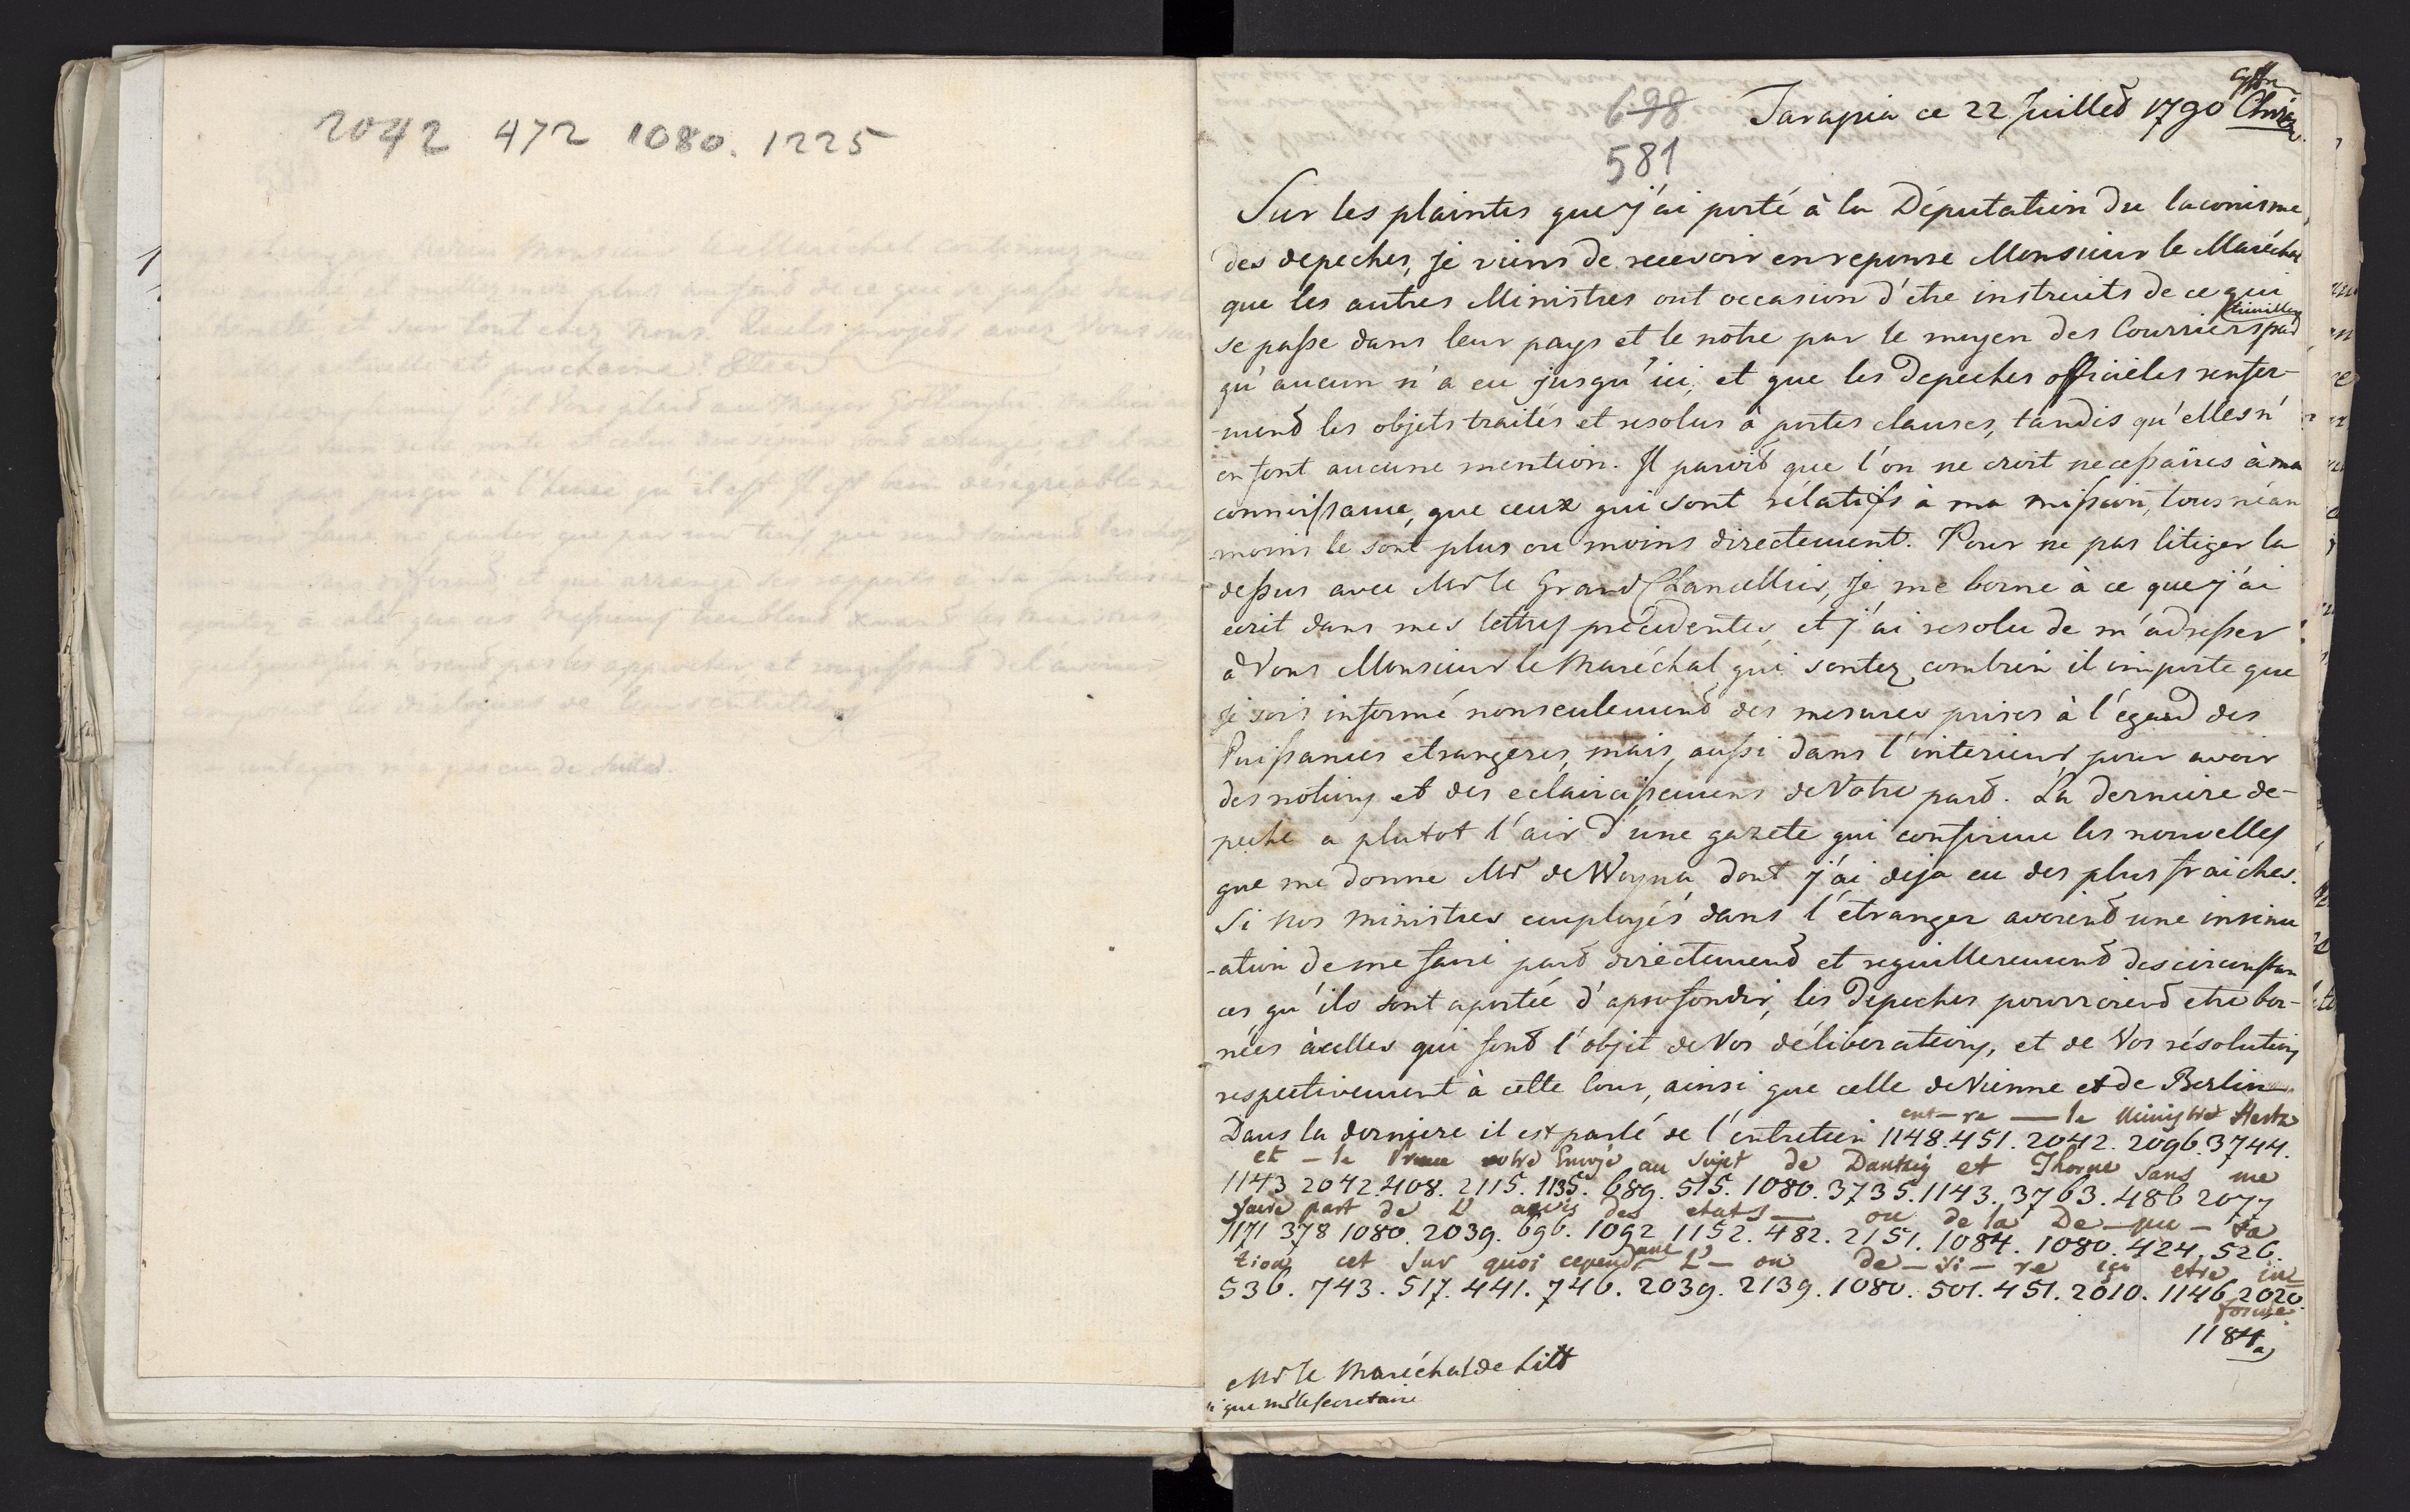 2042 472 1080. 1225
698
Tarapia ce 22 Juillet 1790
581
Sur les plaintes que j'ai porté à la Députation du laconisme
des depeches, je viens de recevoir en reponse Monsieur le Maréchal
que les autres Ministres ont occasion d'etre instruits de ce qui
se passe dans leur pays et le notre par le moyen des Courriers
qu'aucun n'a eu jusqu'ici, et que les depeches officieles renfer-
-ment les objets traités et resolus à portes clauses, tandis qu'elles n'
en font aucune mention. Il paroit que l'on ne croit necessaires à ma
connoissance, que ceux qui sont rélatifs à ma mission, tous néan
-moins le sont plus ou moins directement. Pour ne pas litiger la
dessus avec Mr le Grand Chancellier, je me borne à ce que j'ai
ecrit dans mes lettres précédentes, et j'ai resolu de m'adresser
à Vous Monsieur le Maréchal, qui sentez combien il importe que
je sois informé nonseulement des mesures prises à l'egard des
Puissances etrangeres, mais aussi dans l'interieur, pour avoir
des notions et des eclaircissemens de Votre part. La derniere de-
peche a plutot l'air d'une gazete qui confirme les nouvelles
que me donne Mr de Woyna, dont j'ai deja eu des plus fraiches.
Si nos ministres employés dans l'étranger avoient une insinu
-ation de me faire part directement et reguillerement des circonstan
ces, qu'ils sont aportée d'aprofondir, les depeches pourroient etre bor-
-nées à celles qui font l'objet de Vos déliberations, et de Vos résolutions
respectivement à cette Cour, ainsi que celle de Vienne et de Berlin
ent-re — le Ministre Hertz
Dans la derniere il est parlé de l'entretien 1148. 451. 2042. 2096. 3744.
et - le Prince notre Envoyé au sujet de Dantzig et Thorne sans me
1143 2042. 408. 2115. 1135. 689. 515. 1080. 3735. 1143. 3763. 486 2077
faire part de L' avis des etats — ou de la De-pu-ta
1171 378 1080. 2039. 696. 1092 1152. 482. 2151. 1084. 1080. 424. 526.
tion cet sur quoi cependant L'-on de-si-re ici etre in
536. 743. 517. 441. 746. 2039. 2139. 1080. 501. 451. 2010. 1146 2020.
formé
1184
Mr le Maréchal de Litt
que mr le secretaire